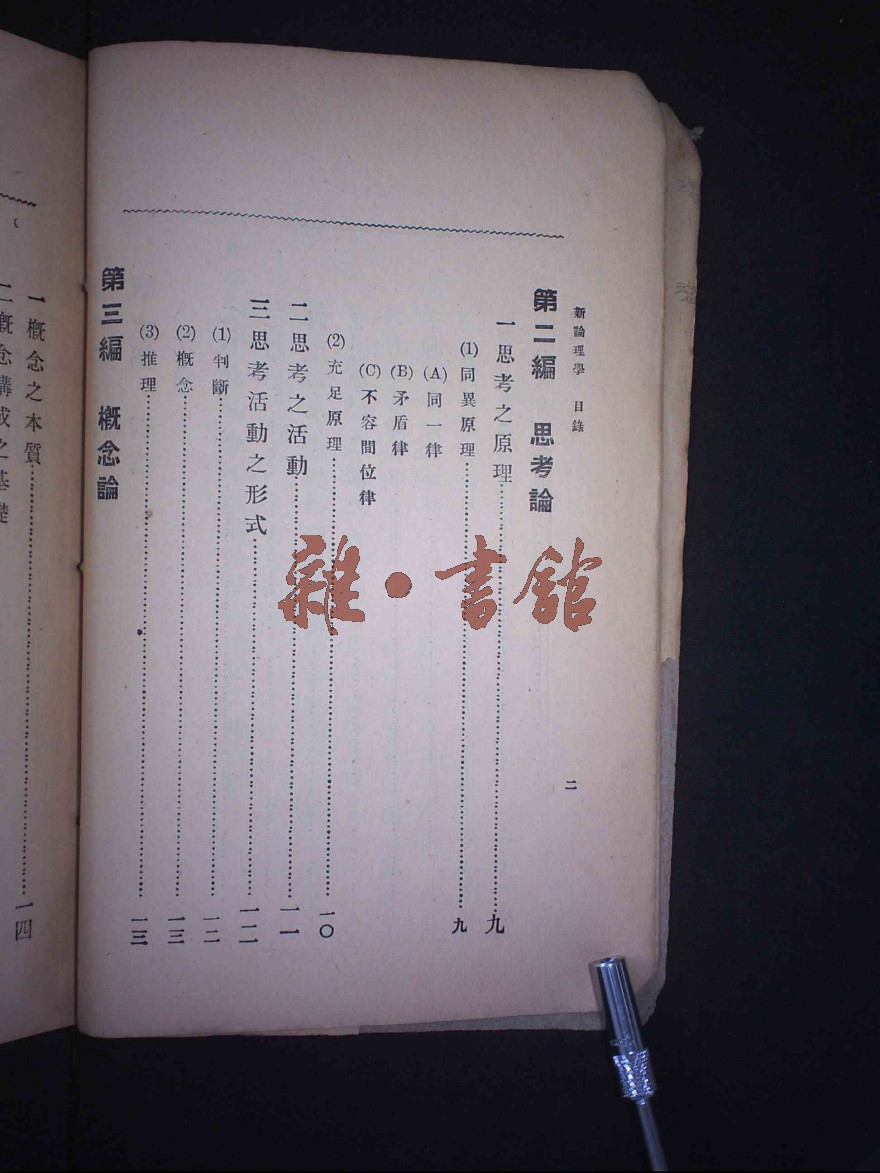 新論理學 目錄
二
第二編 思考論
一思考之原理……九
(1)同異原理……九
(A)同一律
(B)矛盾律
(C)不容間位律
(2)充足原理……一〇
二思考之活動……一一
三思考活動之形式……一二
(1)判斷……一二
(2)概念……一三
(3)推理……一三
第三編 概念論
一概念之本質……一四
二概念構成之基礎
雜·書館